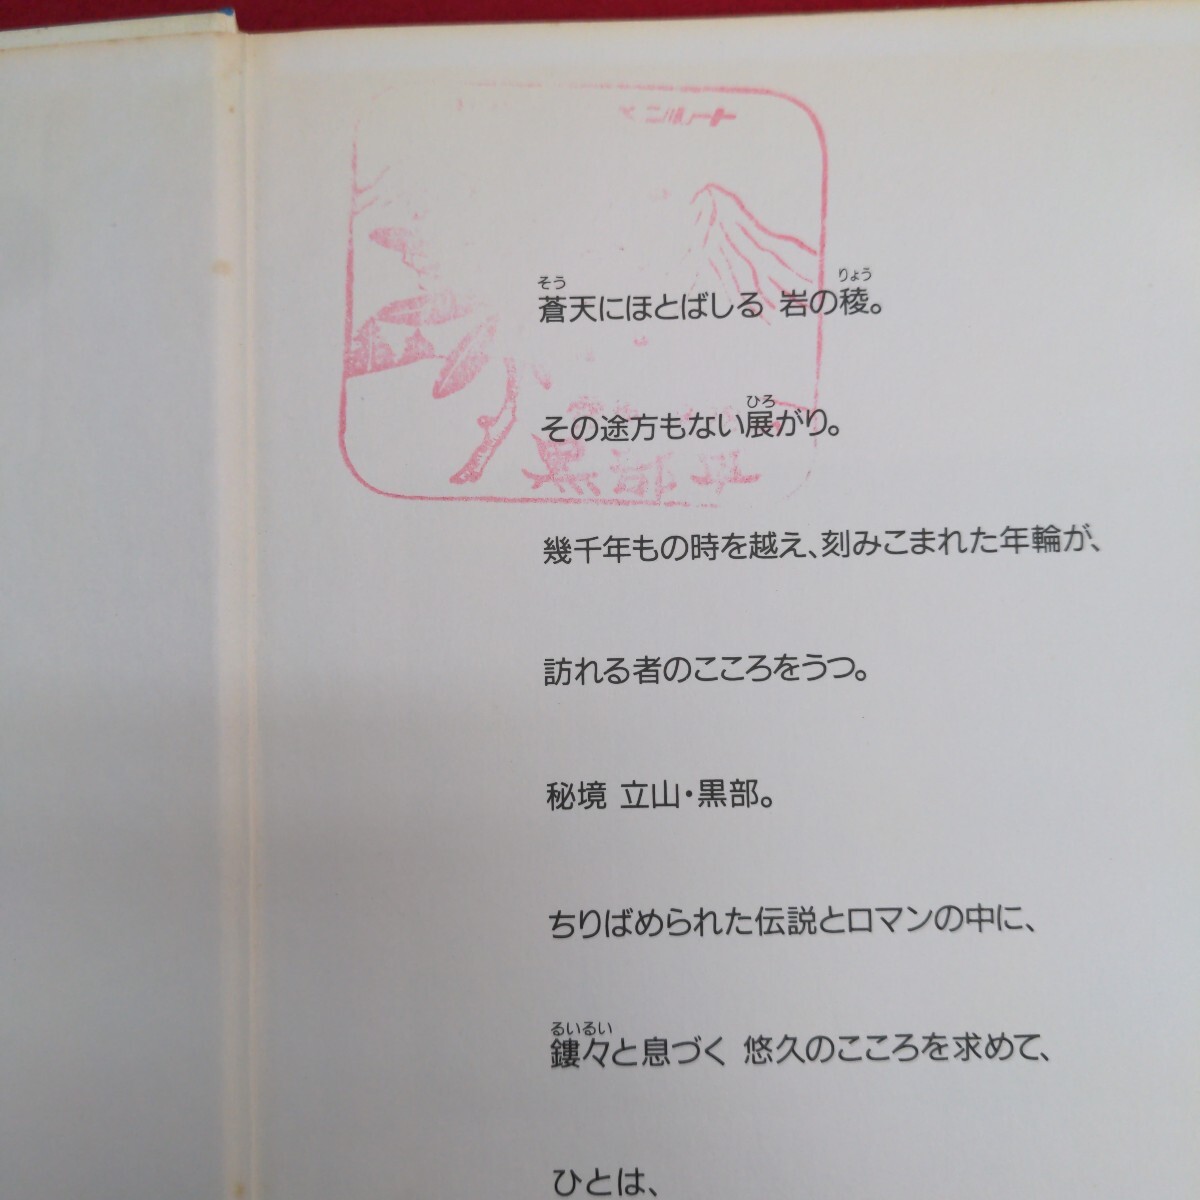 ンルート
そう　りょう
蒼天にほとばしる 岩の稜。
ひろ
その途方もない展がり。
幾千年もの時を越え、刻みこまれた年輪が、
訪れる者のこころをうつ。
秘境 立山・黒部。
ちりばめられた伝説とロマンの中に、
るいるい
鏤々と息づく 悠久のこころを求めて、
ひとは、